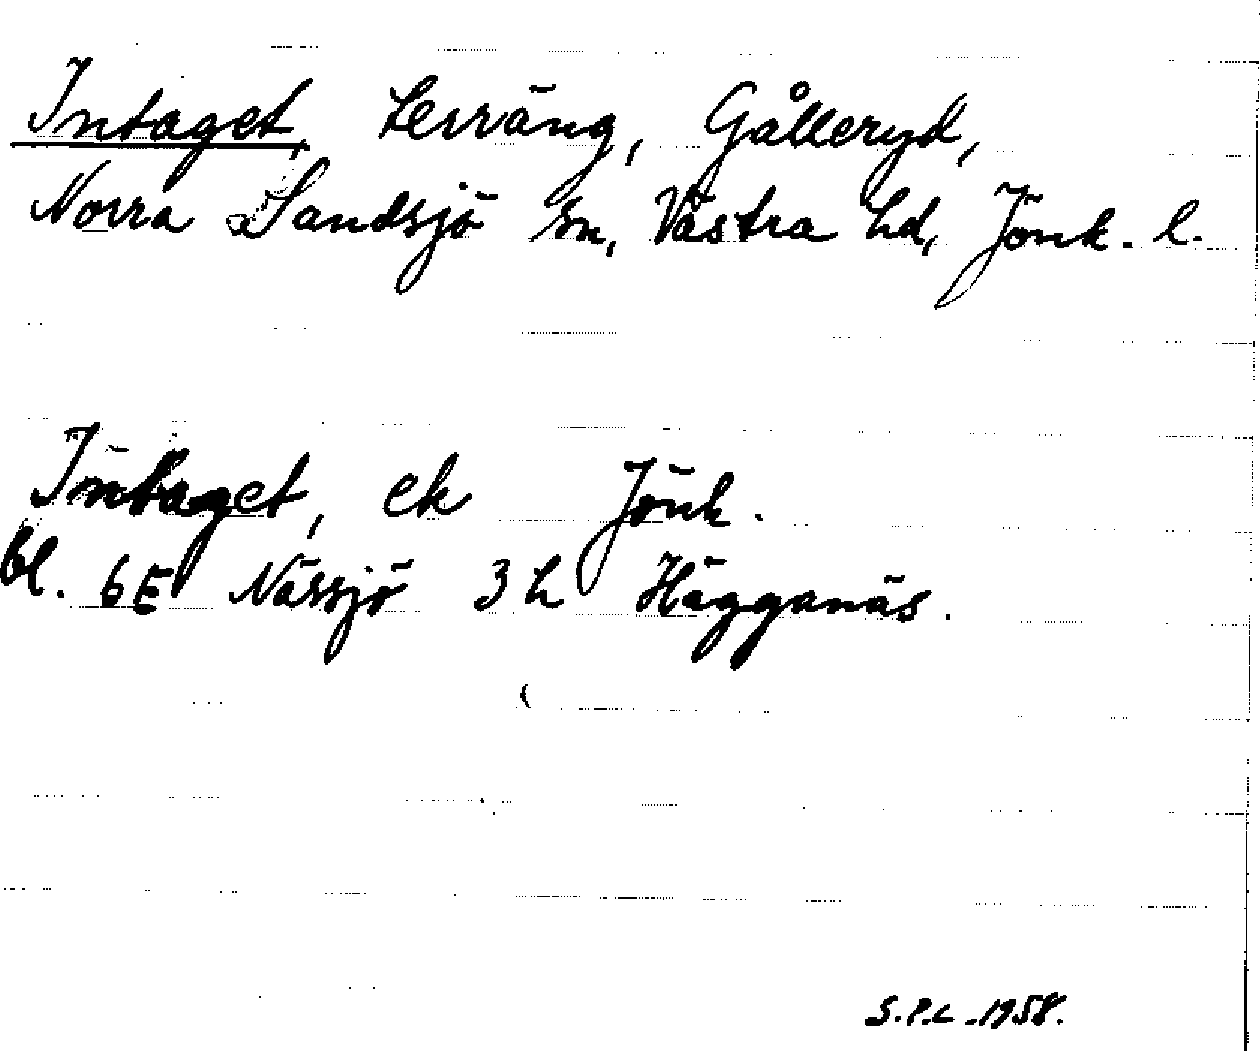 Intaget, terräng, Gålleryd,
Norra Sandsjö sn, Västra hd, Jönk. l.
Intaget, ek Jönk.
bl. 6E Nässjö 3 h Hägganäs.
S.P.L. 1958.